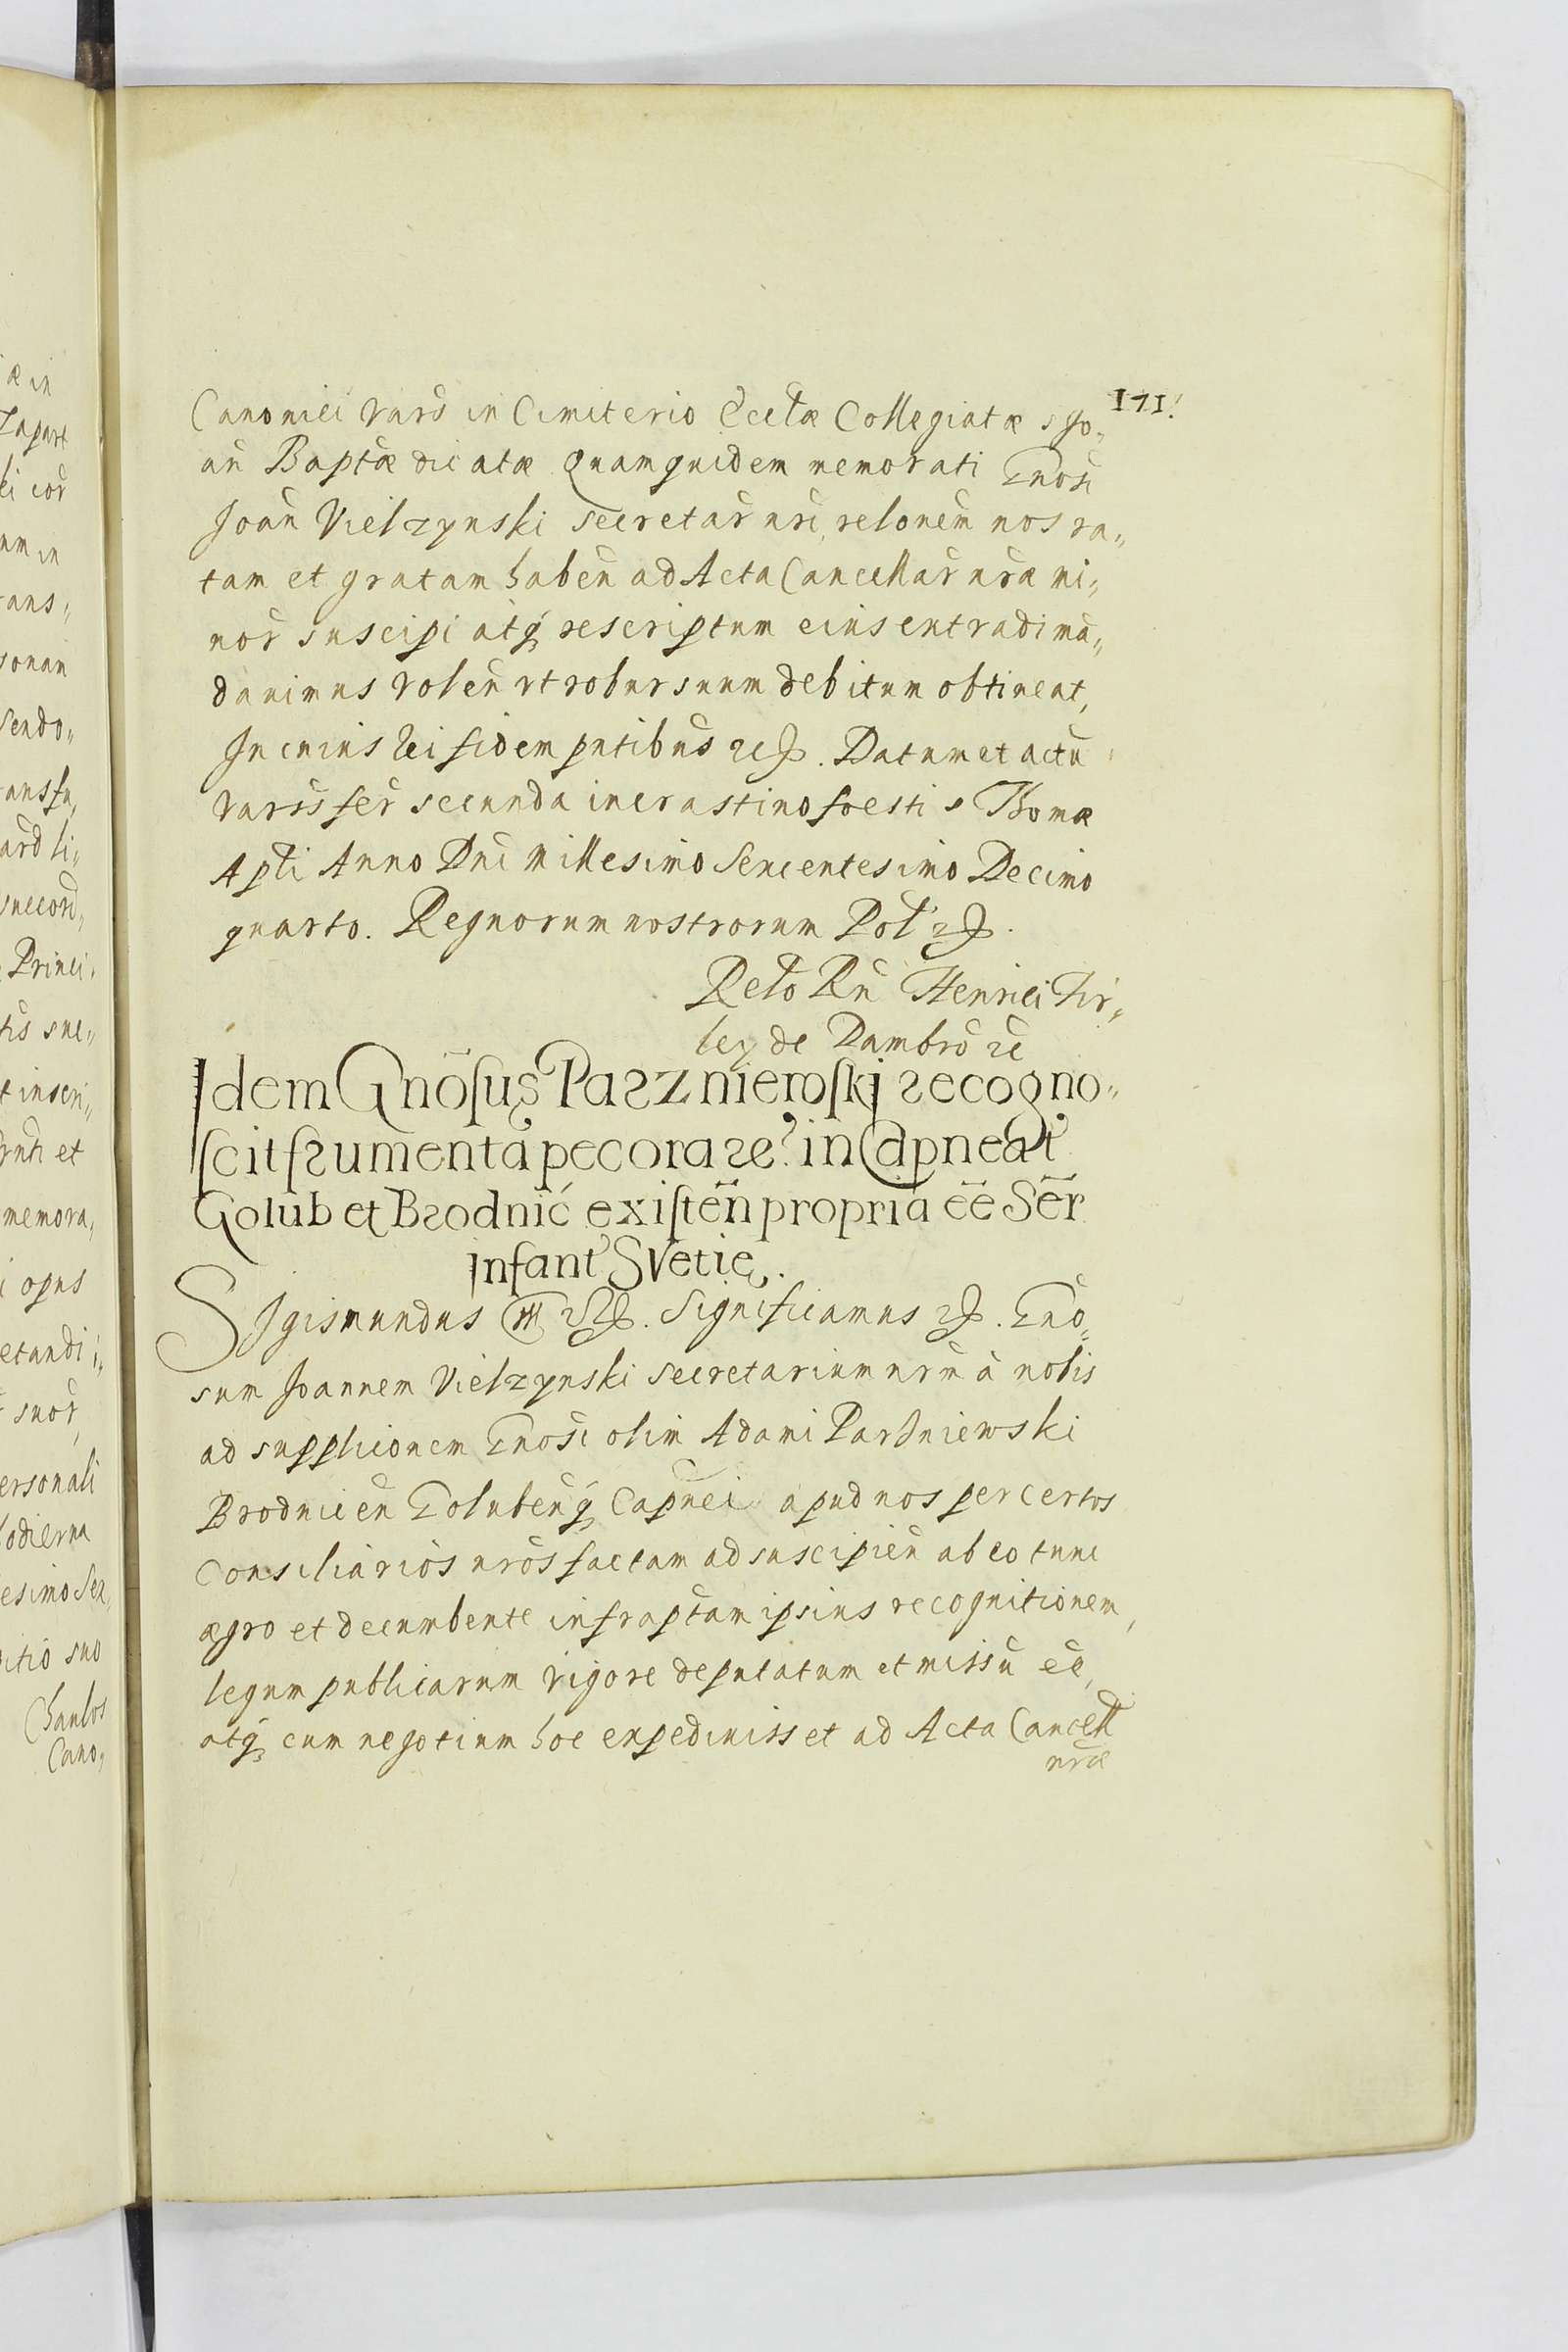 171.
Canonici Vars̃ in Cimiterio Eccłæ Collegiatæ S Jo„
añ Baptæ dicatæ Quamquidem memorati Gnosi
Joañ Vielzynski Secretar̃ nri, relonem̃ nos ra„
tam et gratam habeñ ad Acta Cancellar̃ nræ mi„
nor̃ suscipi atq́ rescriptum eius extradi mã„
davimus Voleñ vt robur suum debitum obtineat,
In cuius Rei fidem pñtibus etc. Datum et actũ
Varss fer̃ secunda in crastino festi S Thomæ
Apłi Anno Dñi Millesimo Sexcentesimo Decimo
quarto. Regnorum nostrorum Poł etc.
Relo Rñ Henrici Fir„
ley de Dambro etc
Idem Gnõsus Parznierosky recogno„
scit frumenta pecora etc. in Capneat
Golub et Brodnic existeñ propria eẽ Ser̃
Infant Svetię.
Sigismundus III etc. Significamus etc. Gno„
sum Joannem Vielzynski Secretarium nrũ à nobis
ad supplicionem Gnosi olim Adami Parzniewski
Brodniceñ Golubeñq́ Capnei apud nos per certos
Consiliarios nros factam ad suscipieñ ab eo tunc
ægro et decumbente infraptam ipsius recognitionem,
legum publicarum Vigore deputatum et missũ eẽ,
atq́ cum negotium hoc expedivisset ad Acta Cancell
nræ
æ in
cor̃
um in
rans„
sonañ
sendo„
ansfu„
Princi„
tis sue„
t inscri„
et
memora„
opus
etandi
suor̃
ersonali
hodierna
esimo Sex„
itio suo
Cano„